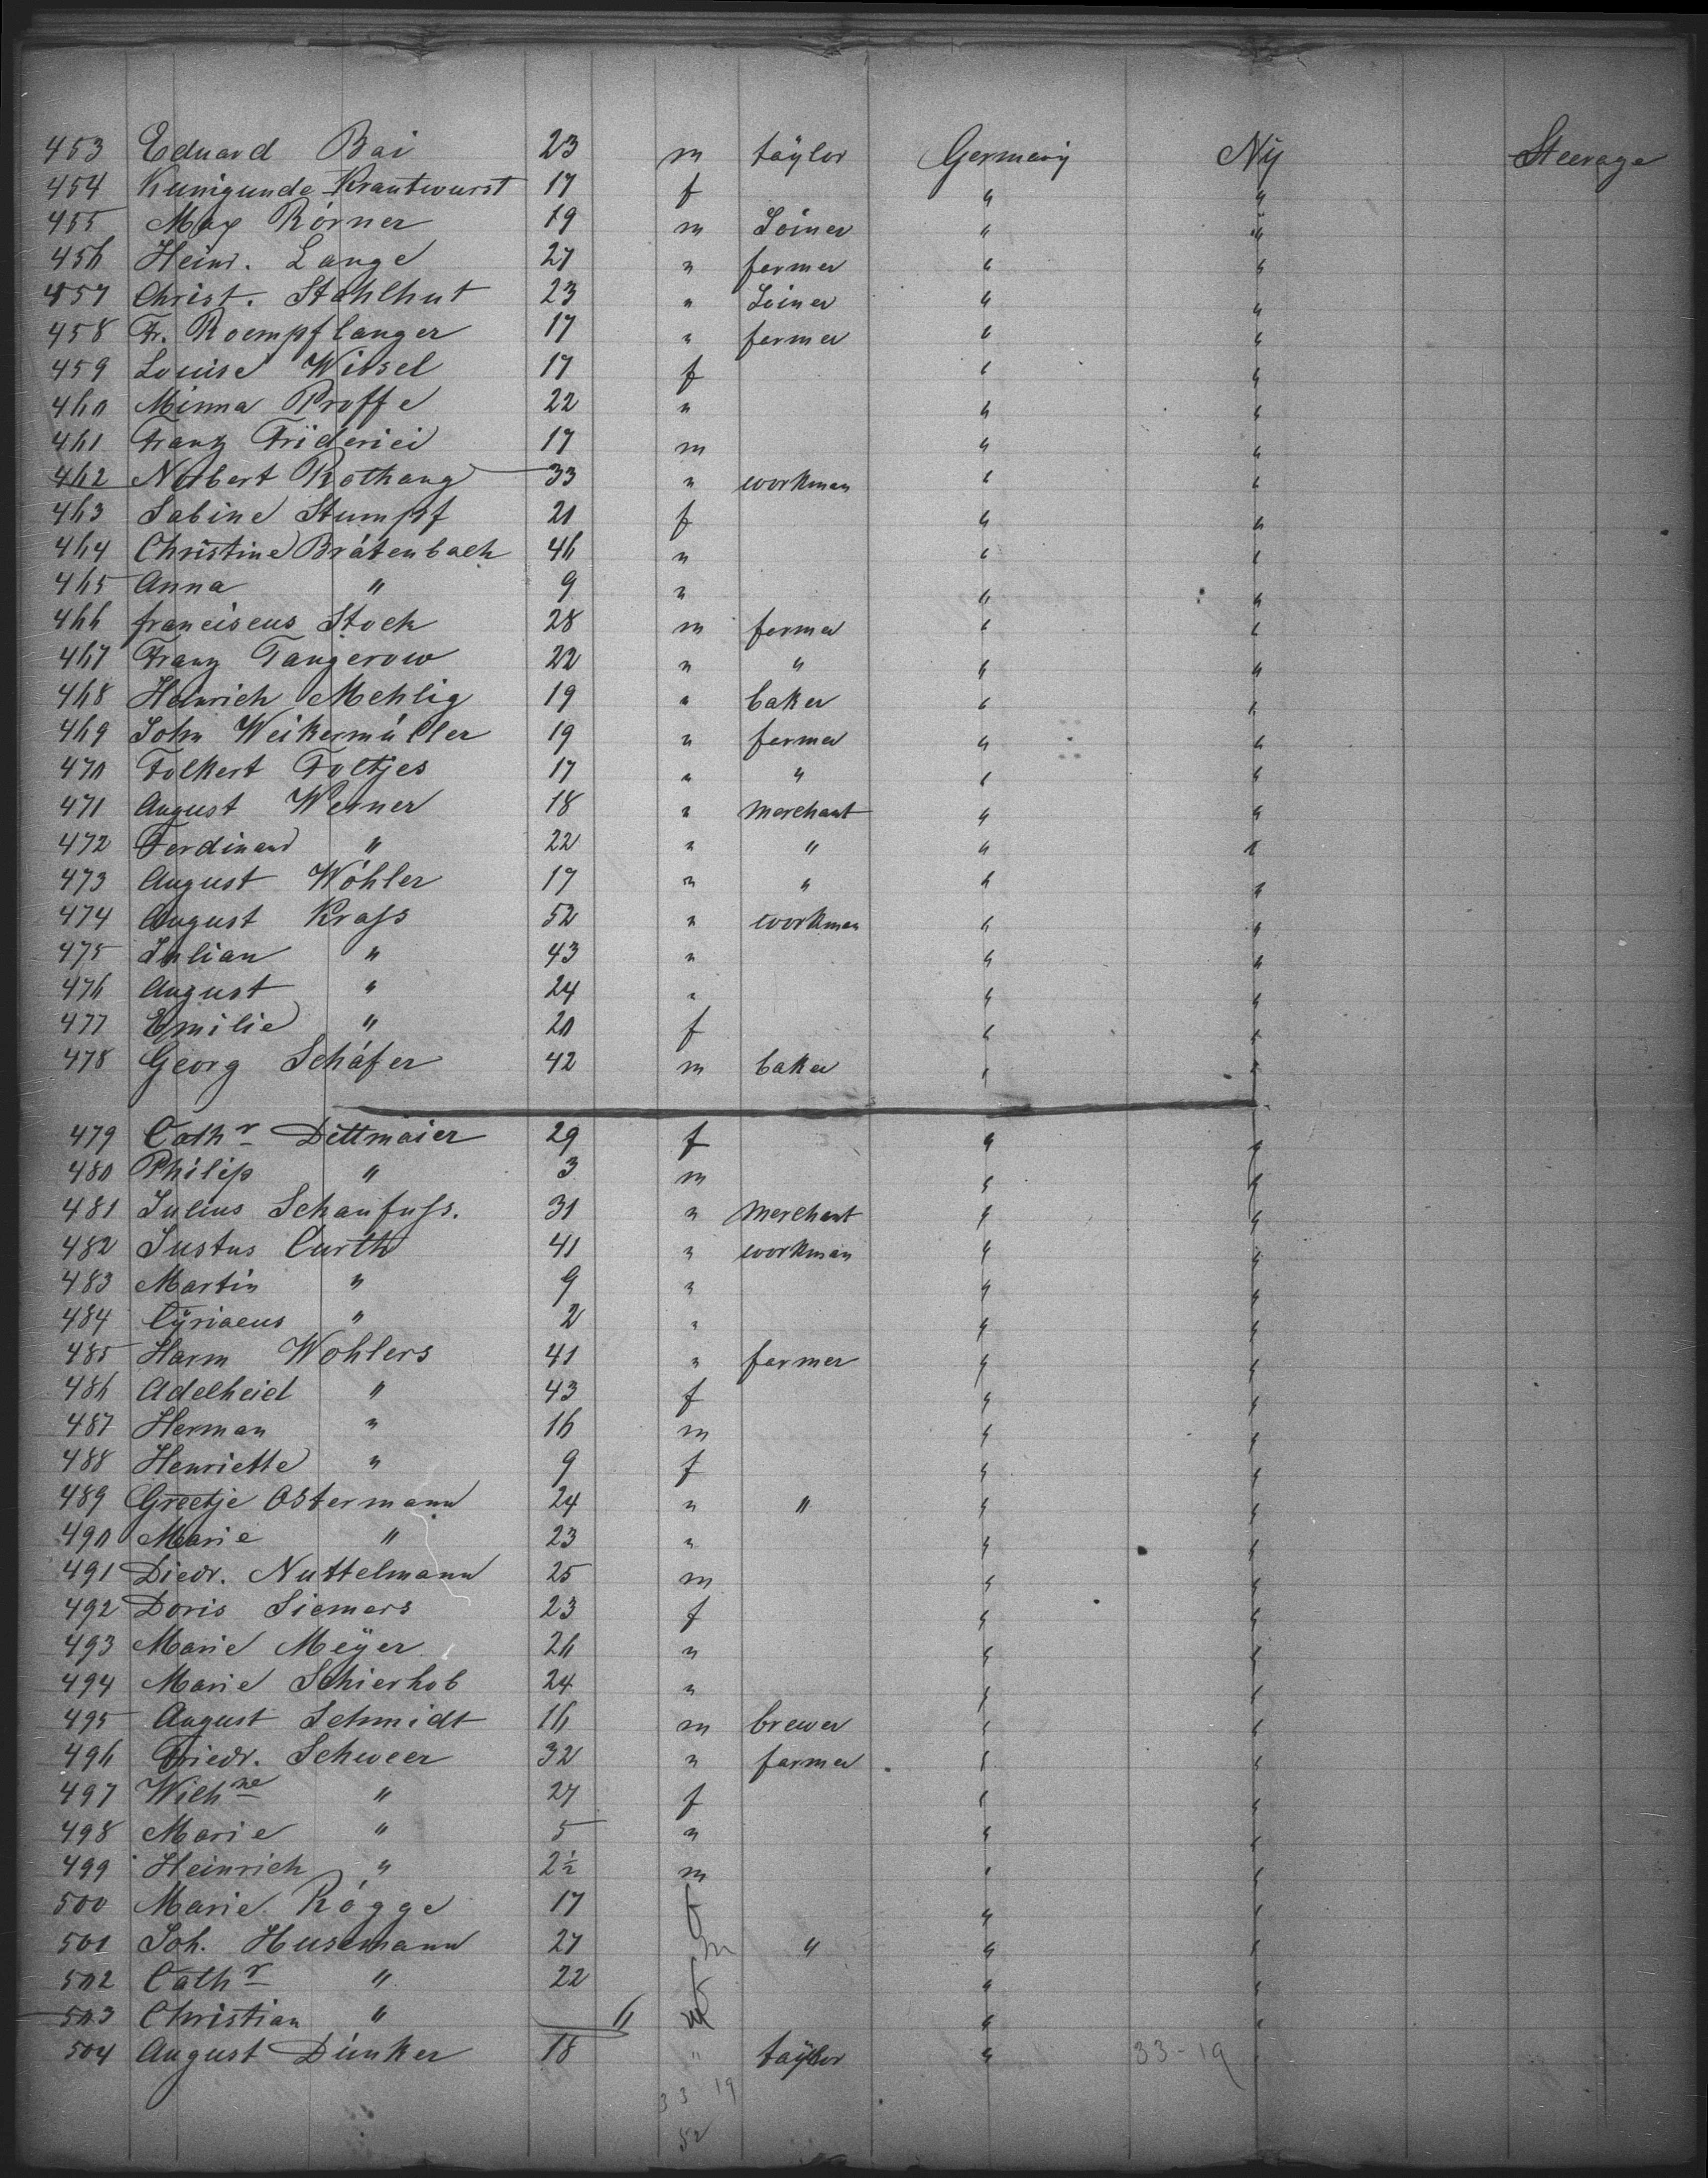 453 Eduard Bai 23 m taylor Germany Ny Steerage
454 Kunigunde Krautwurst 17 f " "
455 Max Körner 19 m Joiner " "
456 Heinr. Lange 27 " farmer " "
457 Christ. Stahlhut 23 " Joiner " "
458 Fr. Roempflanger 17 " farmer " "
459 Louise Wissel 17 f " "
460 Minna Proffe 22 " " "
461 Franz Friderici 17 m " "
462 Norbert Rothaug 33 " workman " "
463 Sabine Stumpf 21 f " "
464 Christine Brätenbach 46 " " "
465 Anna " 9 " " "
466 franciscus Stock 28 m farmer " "
467 Franz Tangerow 22 " " " "
468 Heinrich Mehlig 19 " baker " "
469 John Weikermüller 19 " farmer " "
470 Folkert Foltjes 17 " " " "
471 August Werner 18 " merchant " "
472 Ferdinand " 22 " " " "
473 August Wöhler 17 " " " "
474 August Krass 52 " workman " "
475 Julian " 43 " " "
476 August " 24 " " "
477 Emilie " 20 f " "
478 Georg Schäfer 42 m baker " "
479 Cathr Dittmaier 29 f " "
480 Philip " 3 m " "
481 Julius Schaufuss. 31 " merchant " "
482 Justus Curth 41 " workman " "
483 Martin " 9 " " "
484 Cyriacus " 2 " " "
485 Harm Wohlers 41 " farmer " "
486 Adelheid " 43 f " "
487 Herman " 16 m " "
488 Henriette " 9 f " "
489 Greetje Ostermann 24 " " " "
490 Marie " 23 " " "
491 Diedr. Nuttelmann 25 m " "
492 Doris Siemers 23 f " "
493 Marie Meÿer 26 " " "
494 Marie Schierhob 24 " " "
495 August Schmidt 16 m brewer " "
496 Friedr. Schweer 32 " farmer " "
497 Wilhne " 27 f " "
498 Marie " 5 " " "
499 Heinrich " 2½ m " "
500 Marie Rögge 17 f " "
501 Joh. Husemann 27 m " " "
502 Cathr " 22 f " "
503 Christian " 11 m " "
504 August Dünker 18 " taylor " 33-19 "
33 19
52